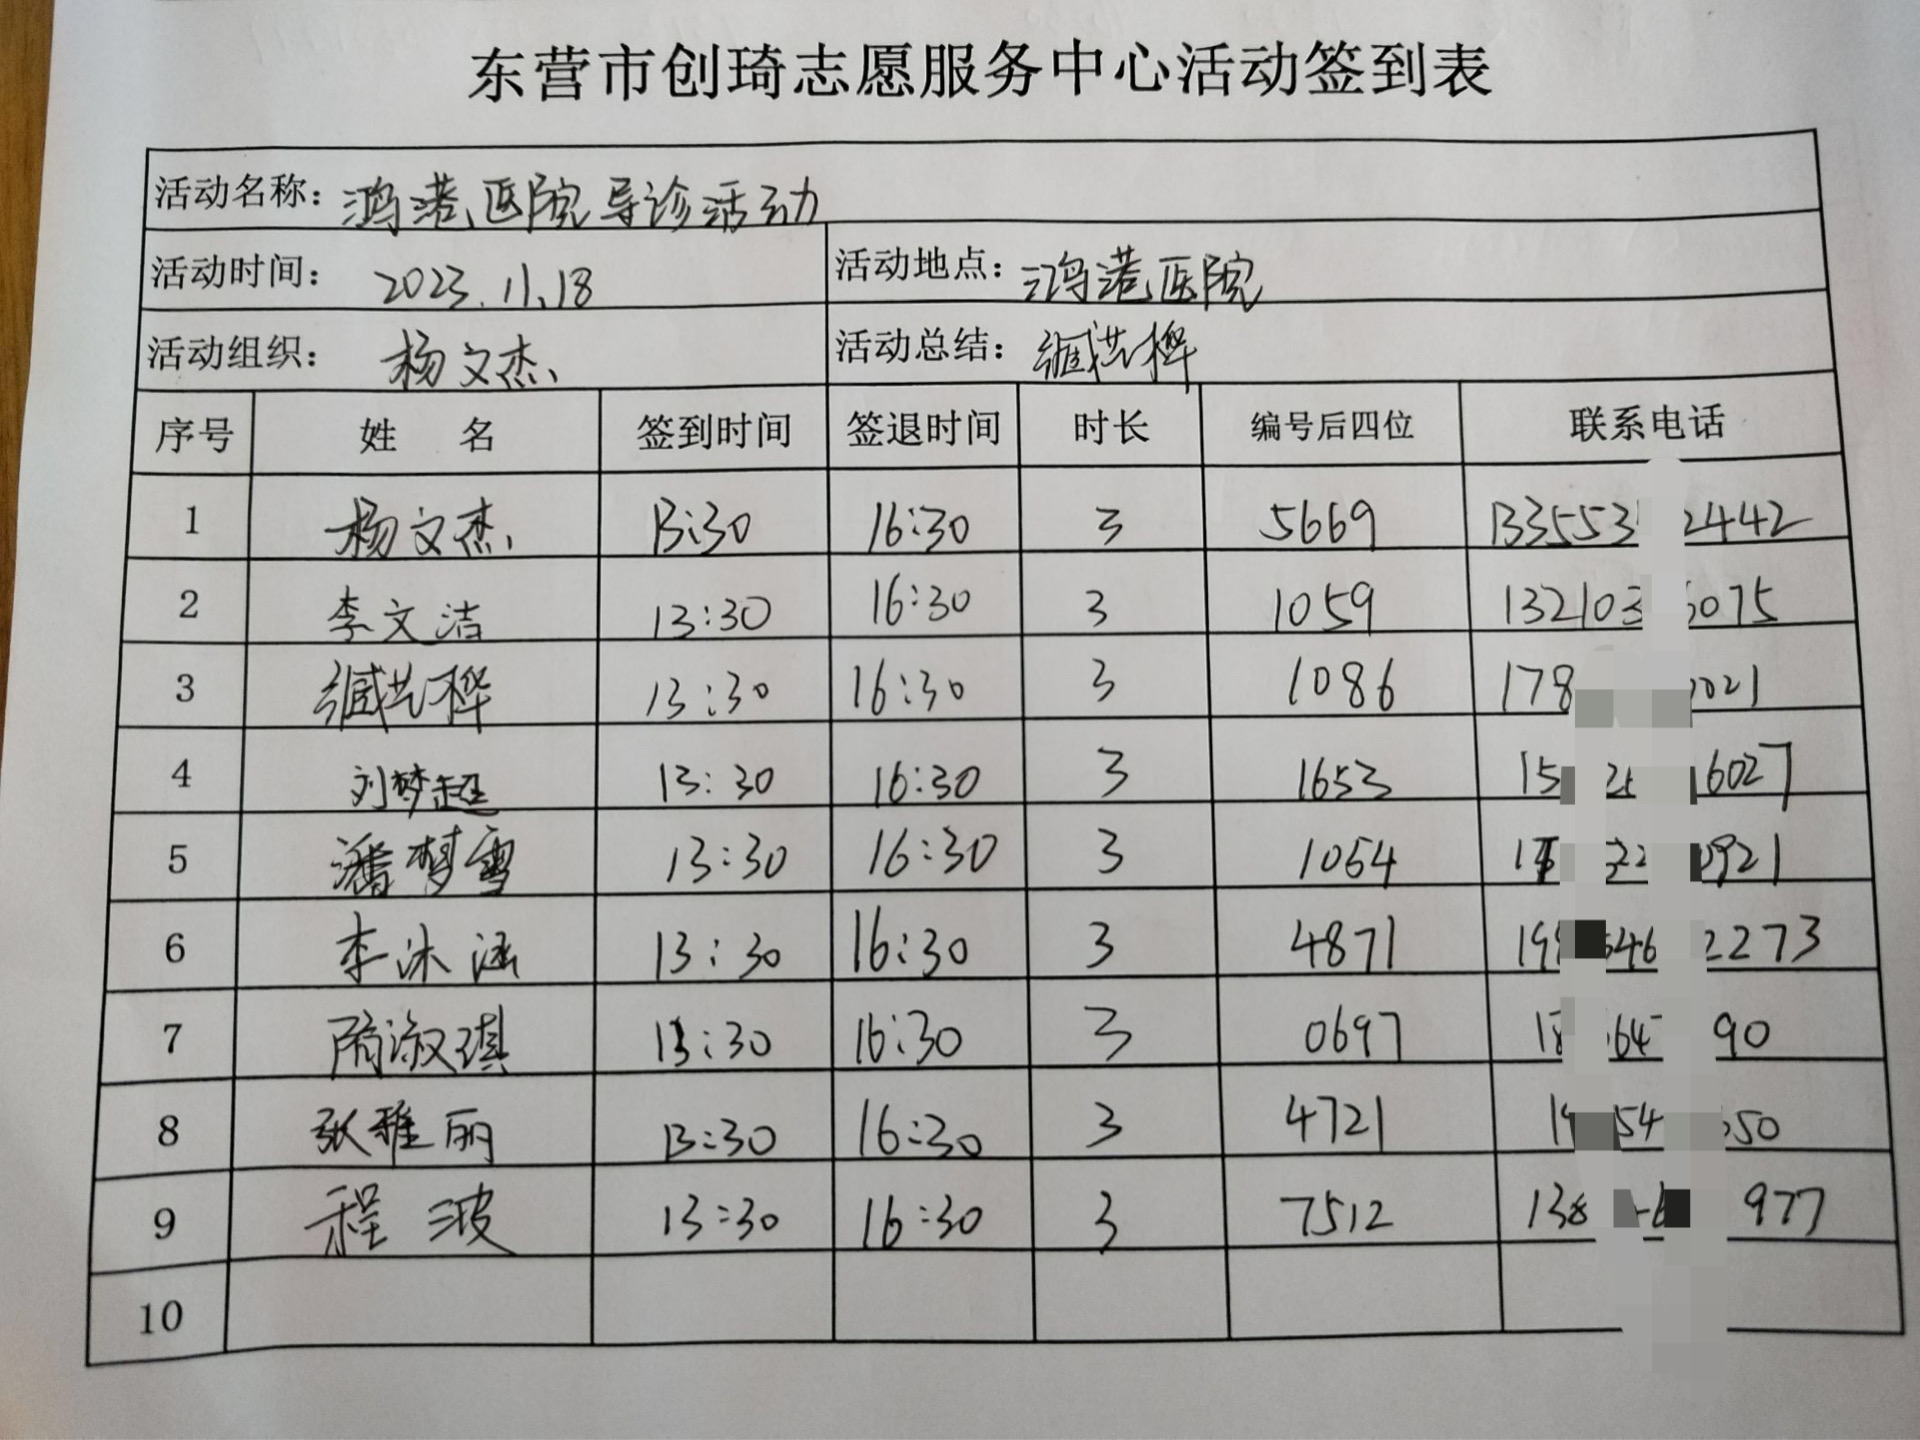 东营市创琦志愿服务中心活动签到表
活动名称：鸿港医院导诊活动
活动时间： 2023.11.18 活动地点：鸿港医院
活动组织： 杨文杰 活动总结：
序号 姓 名 签到时间 签退时间 时长 编号后四位 联系电话
1 杨文杰 13:30 16:30 3 5669 133553 2442
2 李文洁 13:30 16:30 3 1059 132103 6075
3 13:30 16:30 3 1086 178 021
4 刘梦超 13:30 16:30 3 1653 15 2 6027
5 潘梦雪 13:30 16:30 3 1054 22 0921
6 李沐涵 13:30 16:30 3 4871 19 546 2273
7 隋淑琪 13:30 16:30 3 0697 18 64 90
8 张雅丽 13:30 16:30 3 4721 54 50
9 程波 13:30 16:30 3 7512 138 977
10